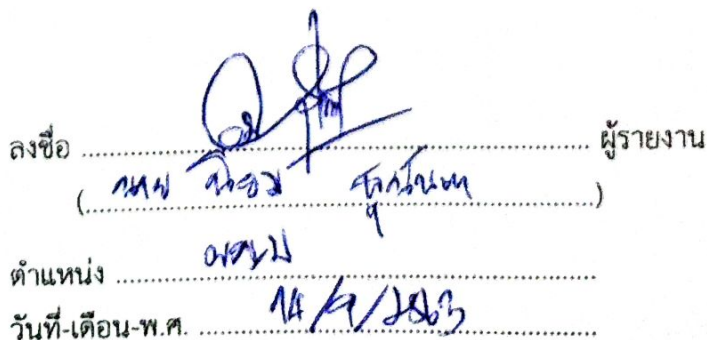 ลงชื่อ ................ ผู้รายงาน
(นาย นิยม )
ตำแหน่ง ................
วันที่-เดือน-พ.ศ. 14/9/2563